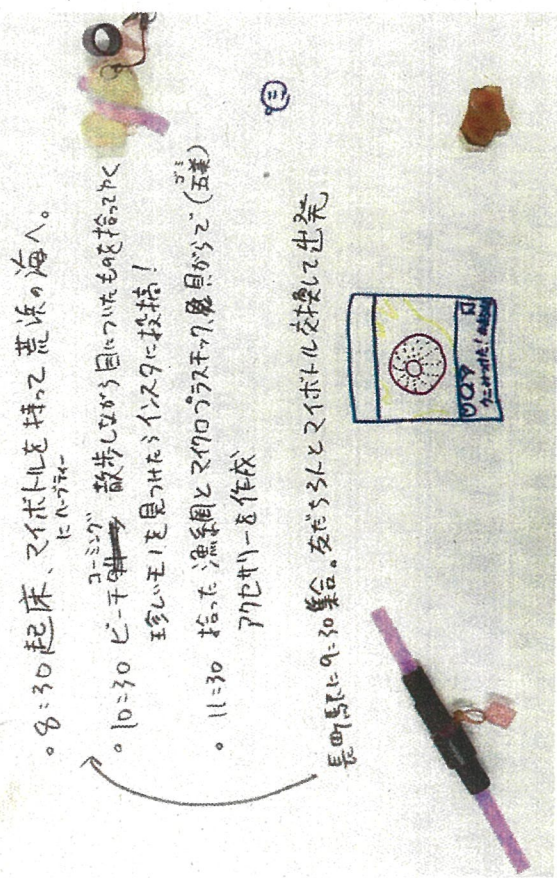 。8:30 起床、マイボトルを持って 荒浜の海へ。
にハーブティー
。10:30 ビーチコーミング 散歩しながら目についたものを拾ってゆく
珍しいモノを見つけたらインスタに投稿！
。11:30 拾った漁網とマイクロプラスチック、貝がらで(五美)
ゴミ
アクセサリーを作成
長町駅に9:30集合。友だち3人とマイボトル交換して出発